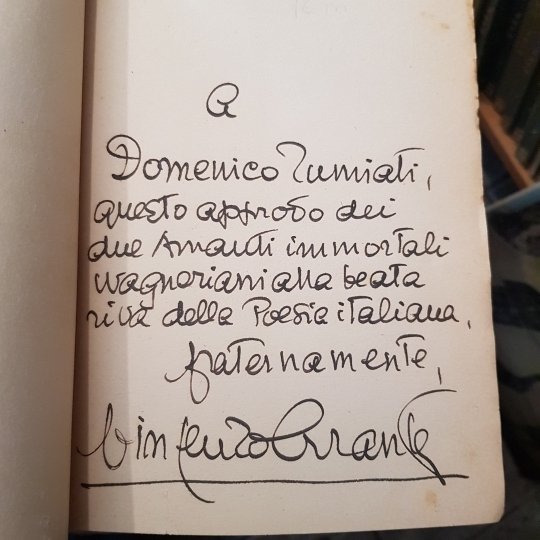 A
Domenico Tumiati,
questo approdo dei
due Amanti immortali
wagneriani alla beata
riva della Poesia italiana,
fraternamente,
Vincenzo Errante